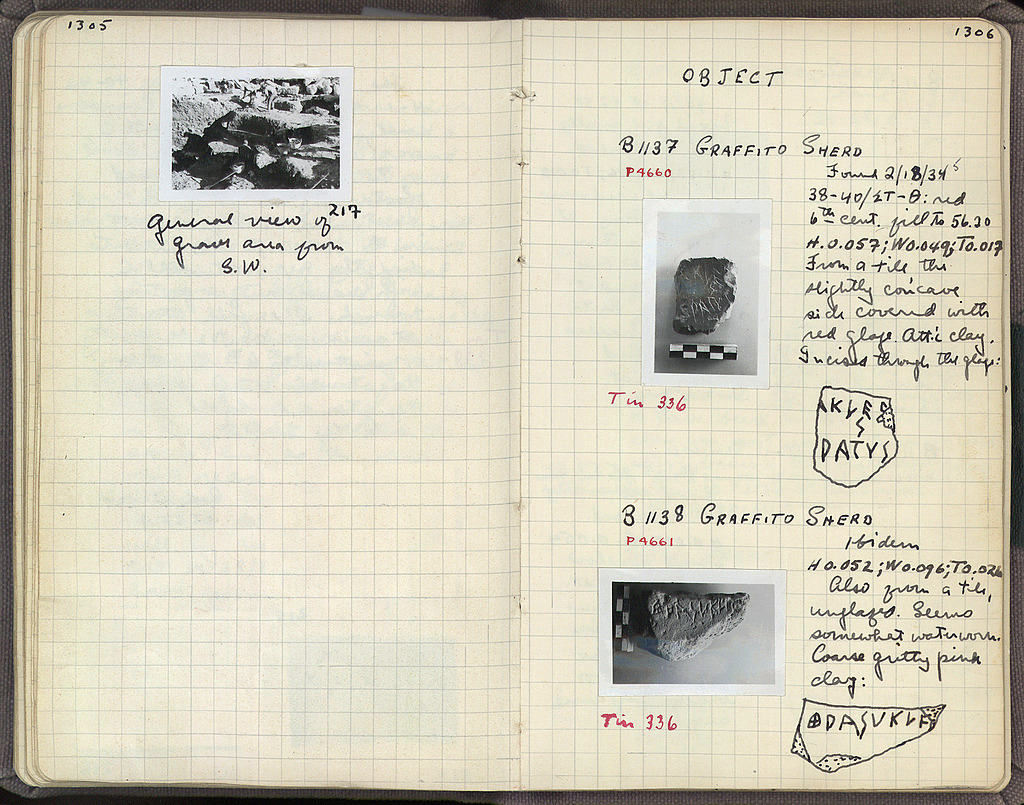 1305
general view of 217
graves area from
S.W.
1306
OBJECT
B 1137 GRAFFITO SHERD
P4660
Found 2/18/34
38-40/ΣT-Θ: red
6th cent. fill to 56.30
H.0.057; W0.049; T0.017
From a tile the
slightly concave
side covered with
red glaze. Attic clay.
Incised through the glaze:
Tin 336
KLEE
S
DATYS
B 1138 GRAFFITO SHERD
P4661
Ibidem
H 0.052; W0.096; T0.026
Also from a tile,
unglazed. Seems
somewhat waterworn.
Coarse gritty pink
clay:
Tin 336
DASUKLE